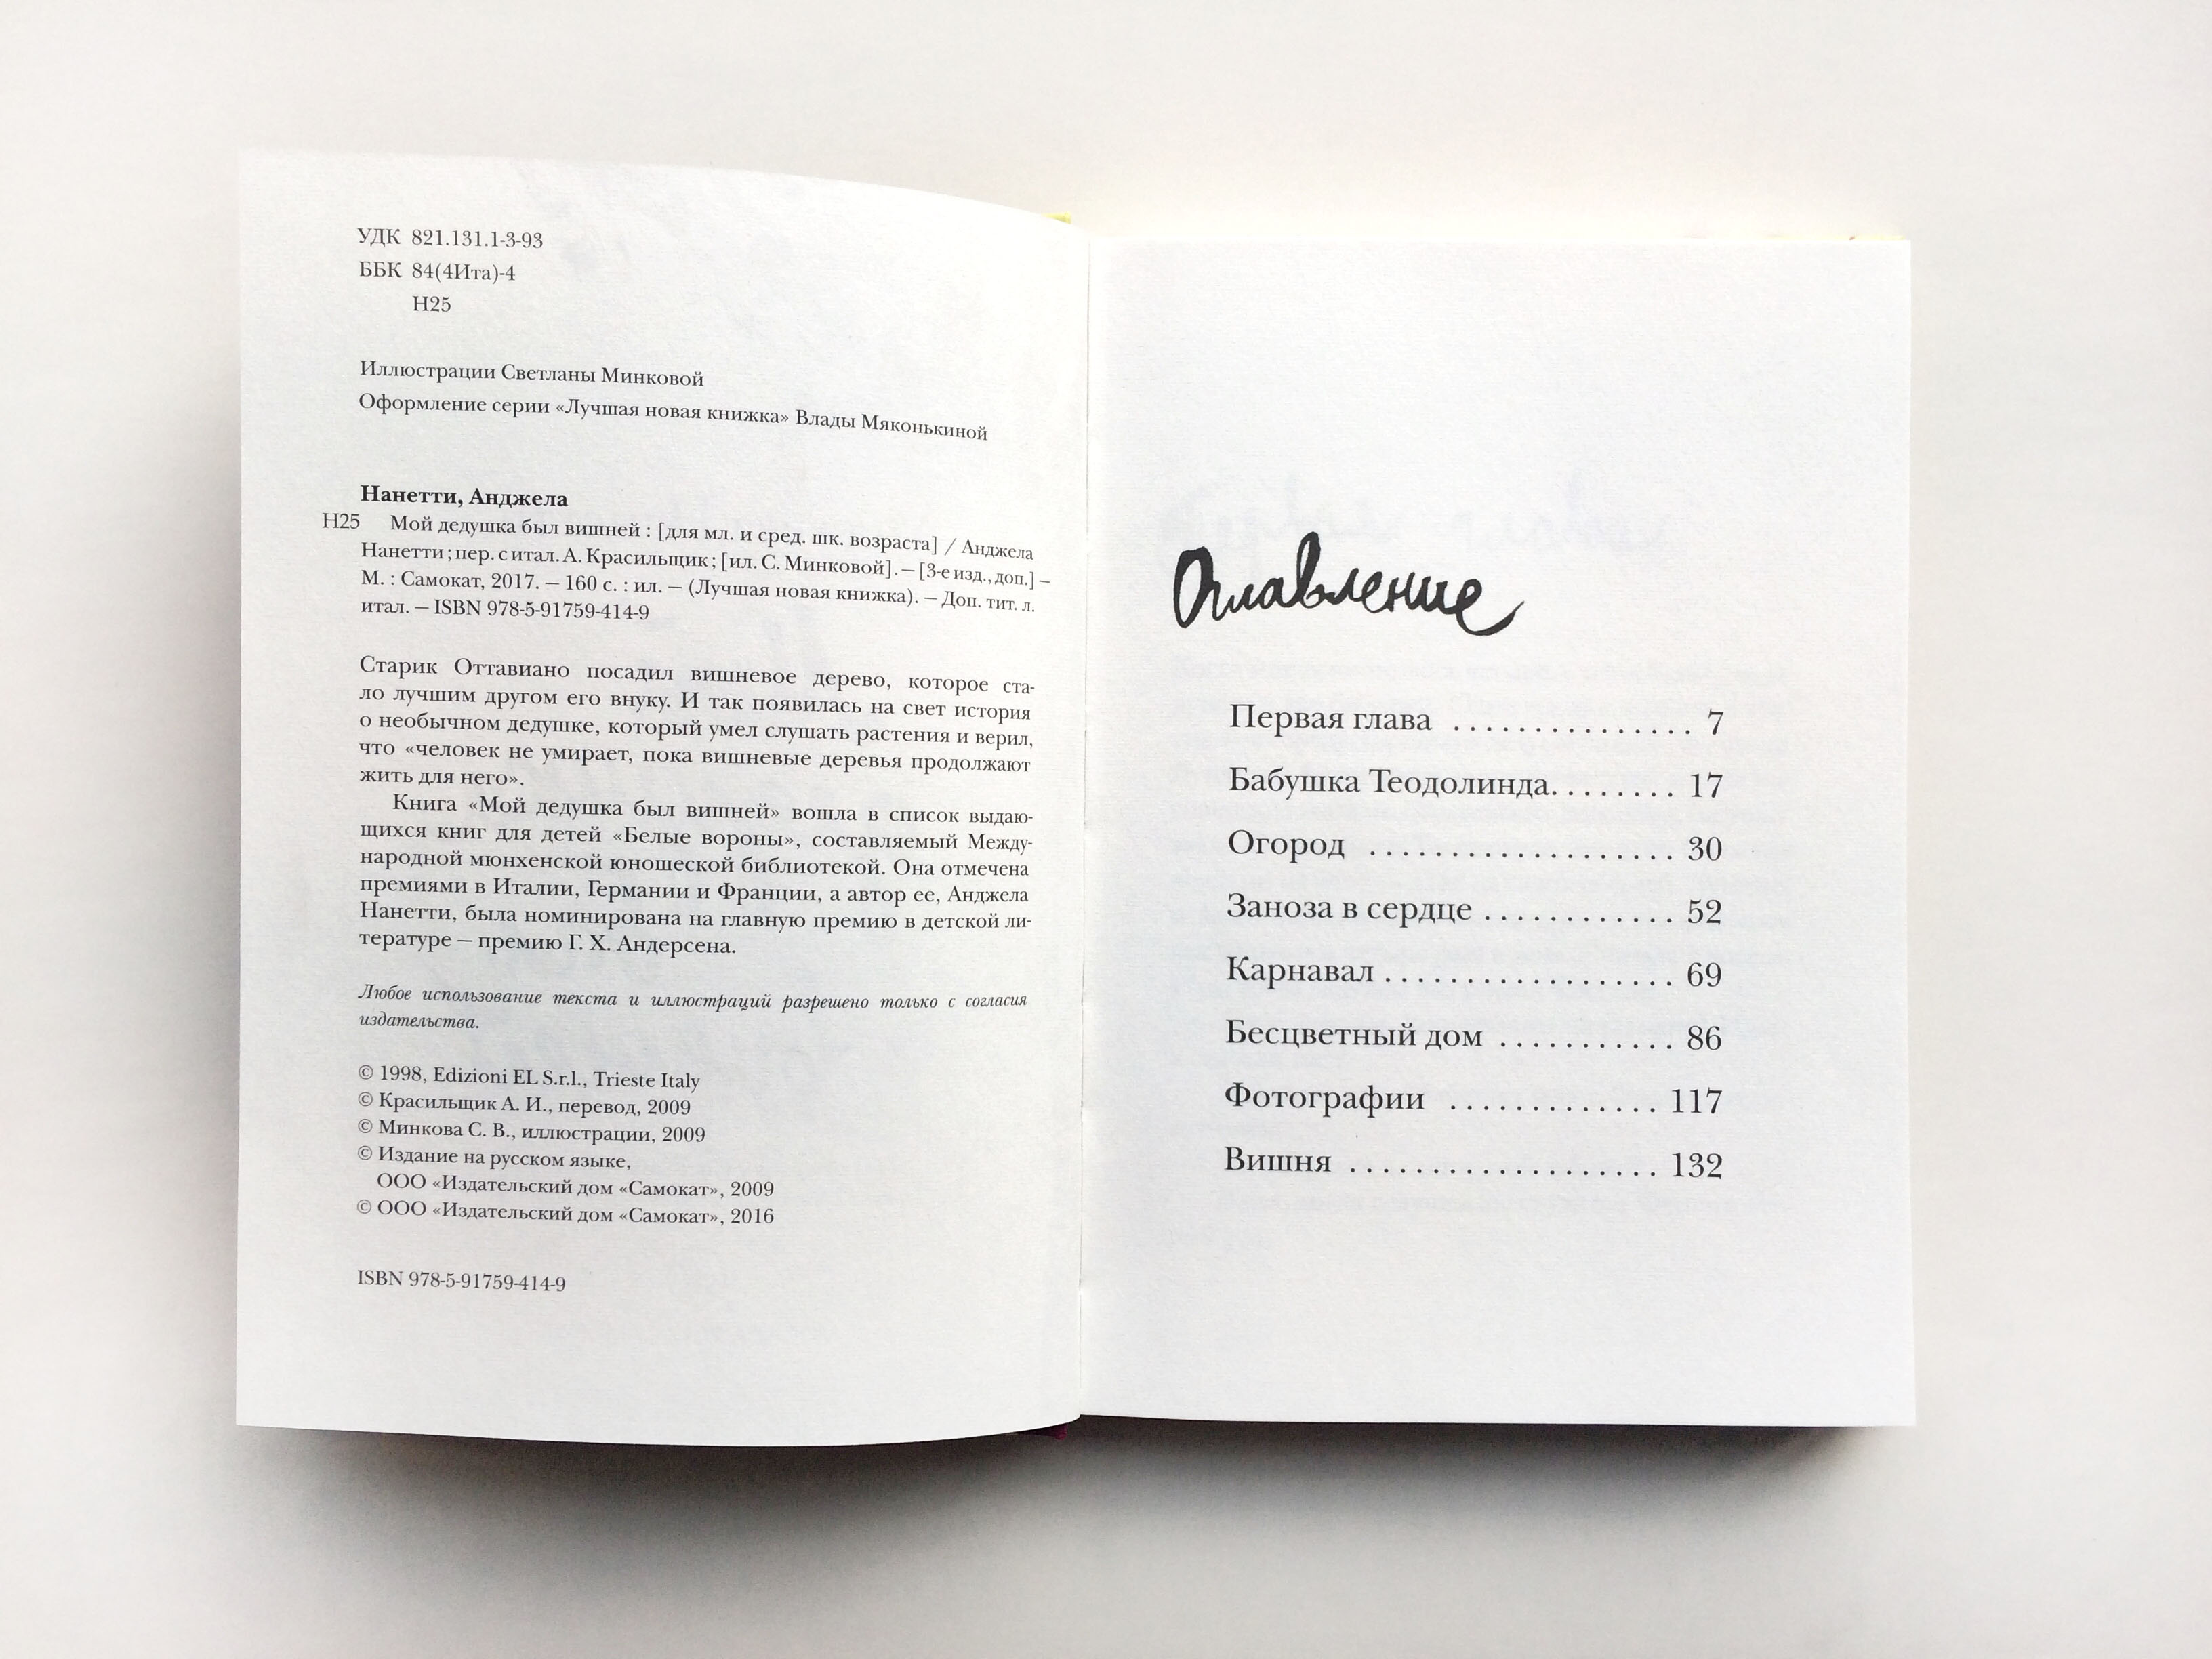 УДК 821.131.1-3-93
ББК 84(4Ита)-4
Н25
Иллюстрации Светланы Минковой
Оформление серии «Лучшая новая книжка» Влады Мяконькиной
Нанетти, Анджела
Н25 Мой дедушка был вишней : [для мл. и сред. шк. возраста] / Анджела
Нанетти ; пер. с итал. А. Красильщик ; [ил. С. Минковой]. — [3-е изд., доп.] —
М. : Самокат, 2017. — 160 с. : ил. — (Лучшая новая книжка). — Доп. тит. л.
итал. — ISBN 978-5-91759-414-9
Старик Оттавиано посадил вишневое дерево, которое ста-
ло лучшим другом его внуку. И так появилась на свет история
о необычном дедушке, который умел слушать растения и верил,
что «человек не умирает, пока вишневые деревья продолжают
жить для него».
Книга «Мой дедушка был вишней» вошла в список выдаю-
щихся книг для детей «Белые вороны», составляемый Между-
народной мюнхенской юношеской библиотекой. Она отмечена
премиями в Италии, Германии и Франции, а автор ее, Анджела
Нанетти, была номинирована на главную премию в детской ли-
тературе — премию Г. Х. Андерсена.
Любое использование текста и иллюстраций разрешено только с согласия
издательства.
© 1998, Edizioni EL S.r.l., Trieste Italy
© Красильщик А. И., перевод, 2009
© Минкова С. В., иллюстрации, 2009
© Издание на русском языке,
ООО «Издательский дом «Самокат», 2009
© ООО «Издательский дом «Самокат», 2016
ISBN 978-5-91759-414-9
Оглавление
Первая глава . . . . . . . . . . . . . . . 7
Бабушка Теодолинда. . . . . . . . 17
Огород . . . . . . . . . . . . . . . . . . . 30
Заноза в сердце . . . . . . . . . . . . 52
Карнавал . . . . . . . . . . . . . . . . . . 69
Бесцветный дом . . . . . . . . . . . 86
Фотографии . . . . . . . . . . . . . 117
Вишня . . . . . . . . . . . . . . . . . . . 132